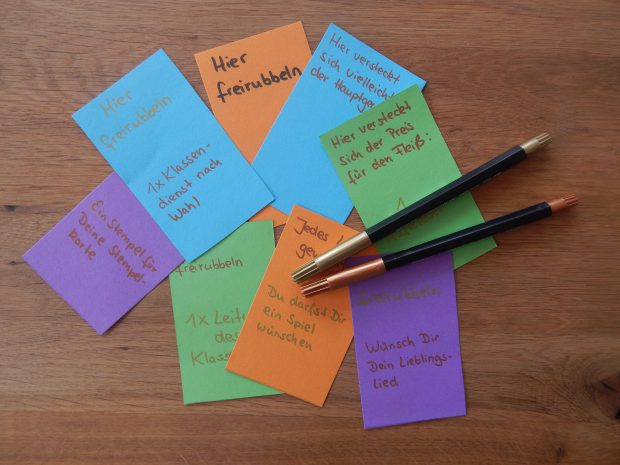 Hier
freirubbeln
1x Klassen-
dienst nach
Wahl
Hier
freirubbeln
Hier versteckt
sich vielleicht
der Hauptge
Hier versteckt
sich der Preis
für den Fleiß:
1
Ein Stempel für
Deine Stempel-
karte
freirubbeln
1x Leit
des
Klass
Jedes
gew
Du darfst Dir
ein Spiel
wünschen
freirubbeln
Wünsch Dir
Dein Lieblings-
Lied